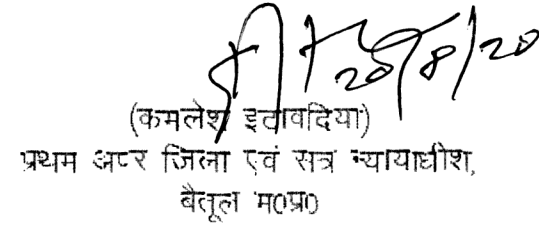 20/8/20
(कमलेश इटावदिया)
प्रथम अपर जिला एवं सत्र न्यायाधीश,
बैतूल म0प्र0